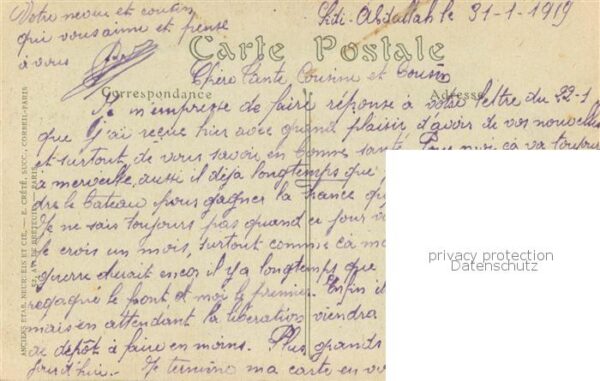 Votre neveu et cousin
qui vous aime et pense
à vous
Sidi-Abdallah le 31-1-1919
Carte Postale
Chère Tante, Cousine et Cousin
Correspondance
Adresse
Je m'empresse de faire réponse à votre lettre du 22-1
que j'ai reçue hier avec grand plaisir d'avoir de vos nouvelles
et surtout de vous savoir en bonne santé. Pour moi ça va toujours
à merveille, aussi il déjà longtemps que
dre le bateau pour gagner la France
Je ne sais toujours pas quand ce jour
Je crois un mois, surtout comme ça
guerre durait encore il y a longtemps que
regagné le front et moi le premier. Enfin
mais en attendant la libération viendra
de dépôt à faire en moins. Plus grand
Je termine ma carte en
privacy protection
Datenschutz
ANCIENS ETAB. NEUR EIN ET CIE. — E. CRÉTÉ, SUCC., CORBEIL-PARIS
PARIS